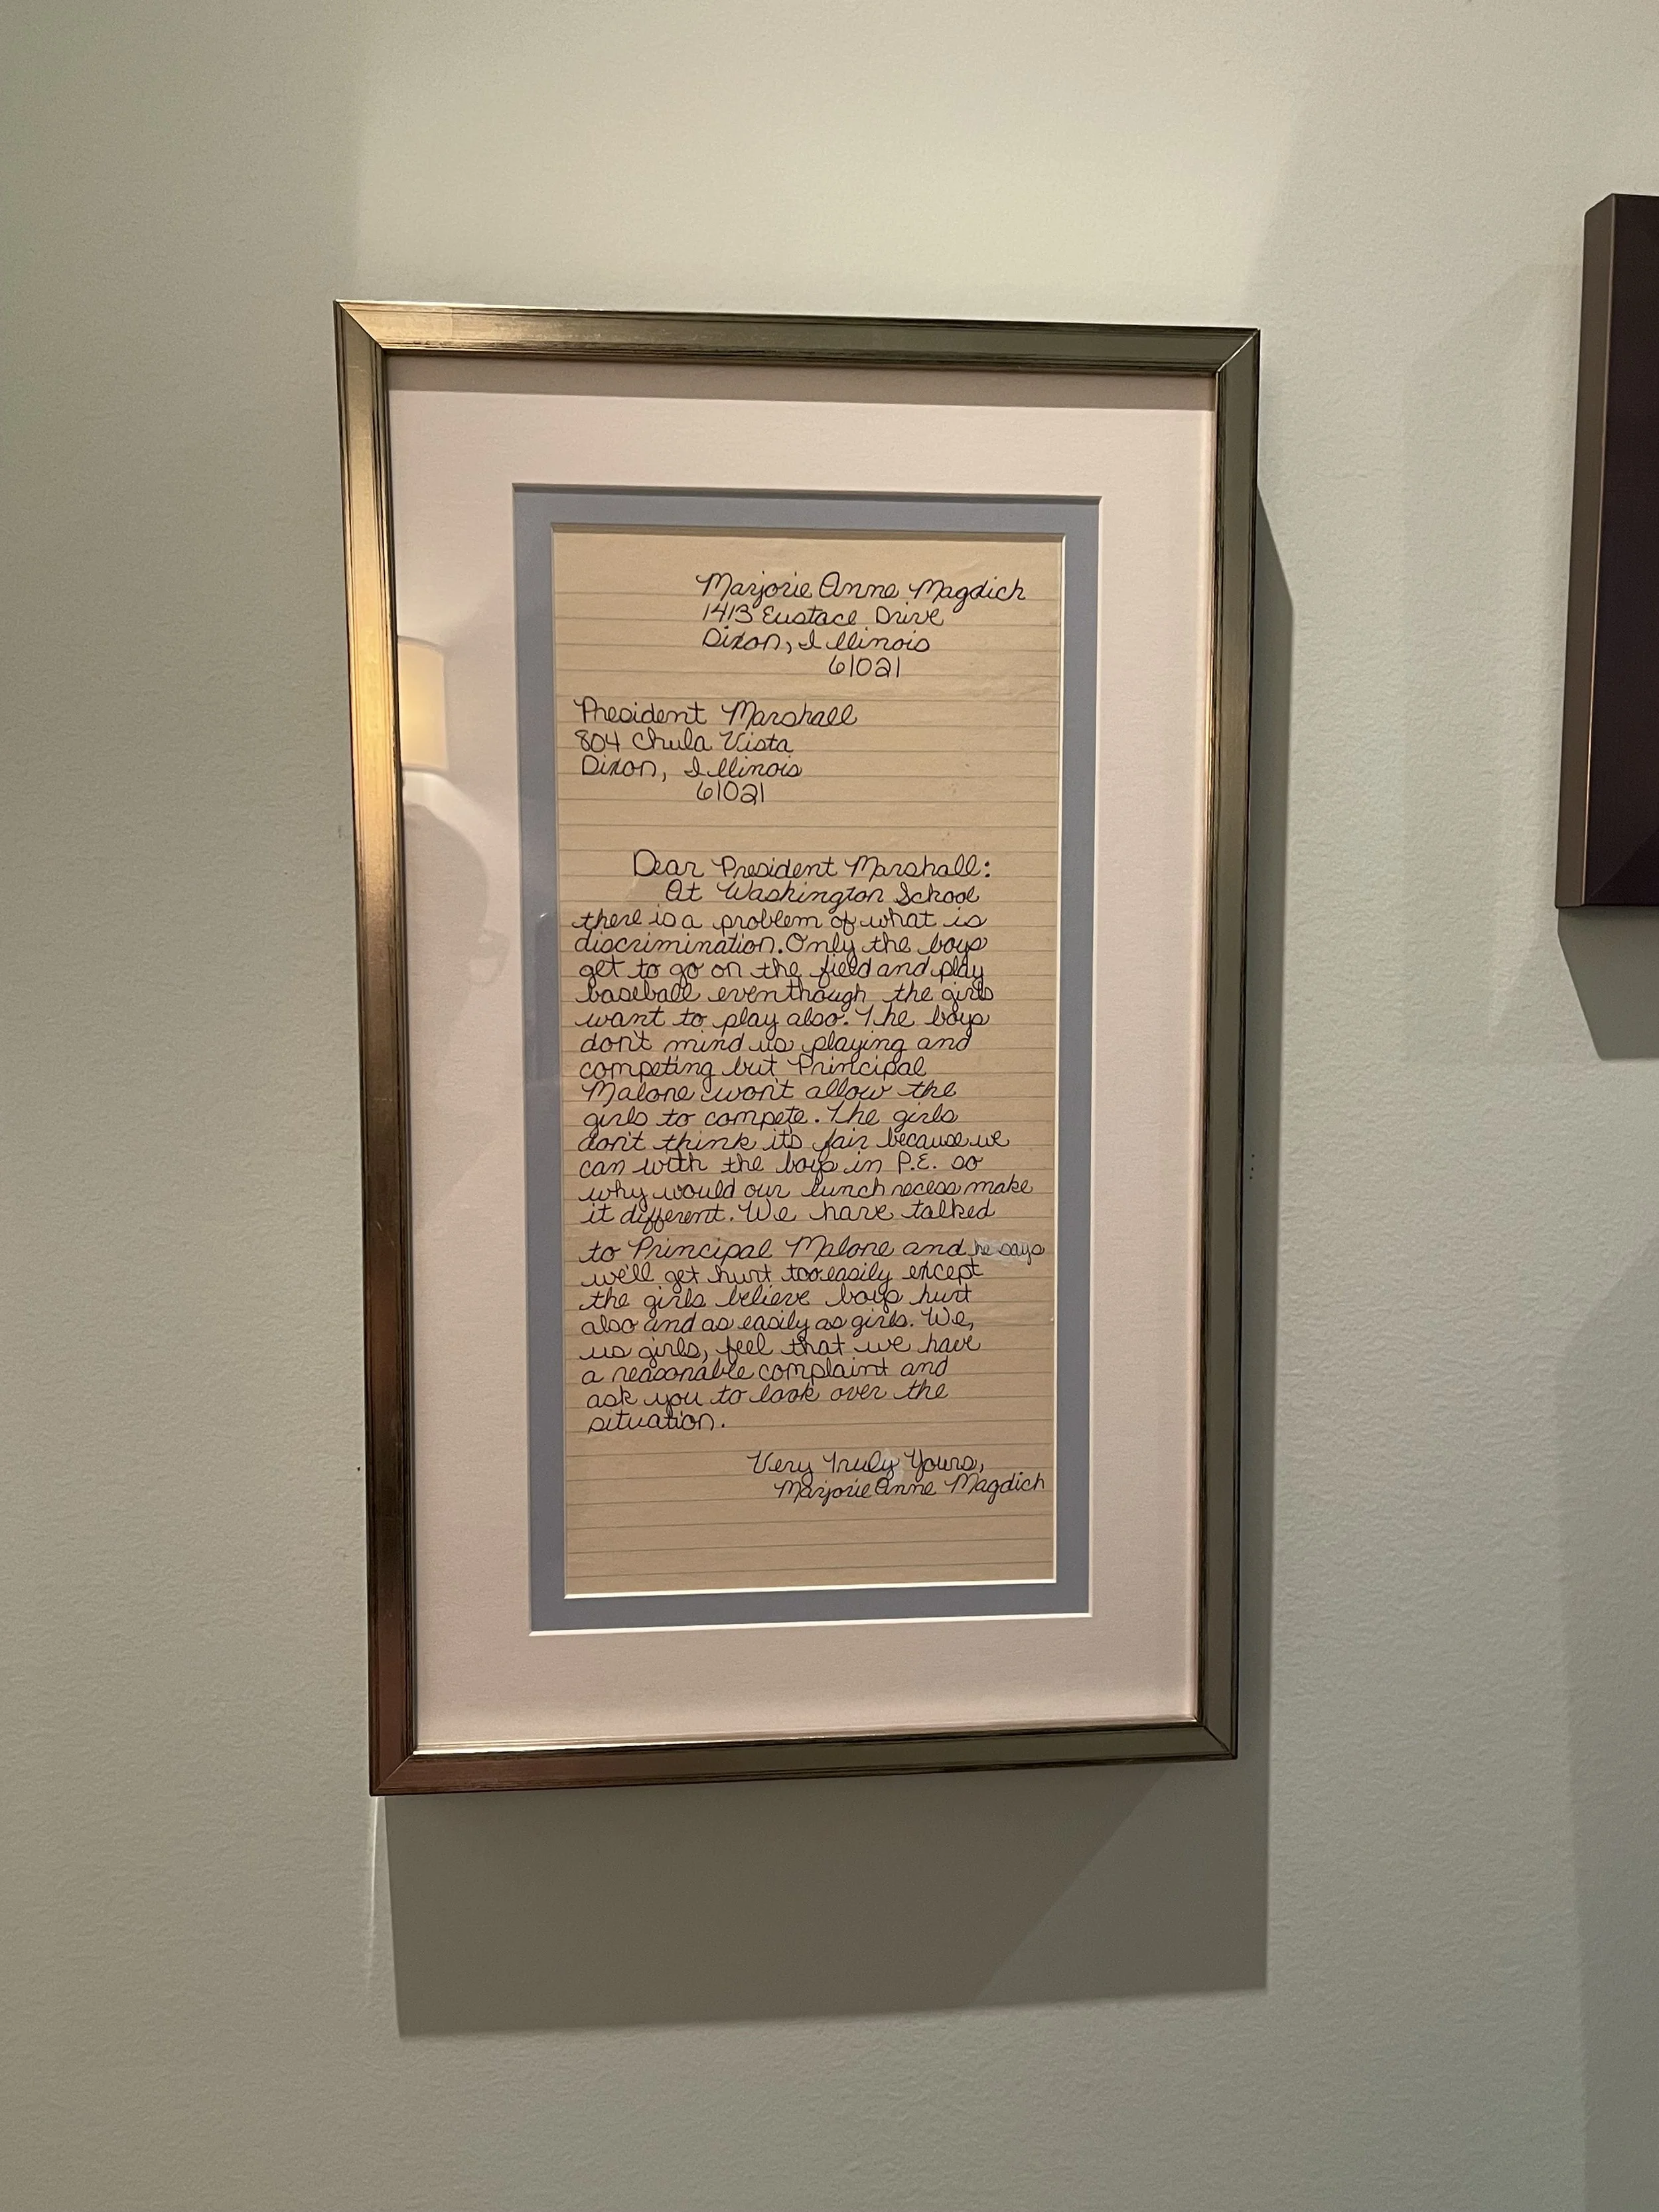 Marjorie Anne Magdich
1413 Eustace Drive
Dixon, Illinois
61021
President Marshall
804 Chula Vista
Dixon, Illinois
61021
Dear President Marshall:
At Washington School
there is a problem of what is
discrimination. Only the boys
get to go on the field and play
baseball eventhough the girls
want to play also. The boys
don't mind us playing and
competing but Principal
Malone won't allow the
girls to compete. The girls
don't think it's fair because we
can with the boys in P.E. so
why would our lunch recess make
it different. We have talked
to Principal Malone and he says
we'll get hurt too easily except
the girls believe boys hurt
also and as easily as girls. We,
us girls, feel that we have
a reasonable complaint and
ask you to look over the
situation.
Very Truly Yours,
Marjorie Anne Magdich